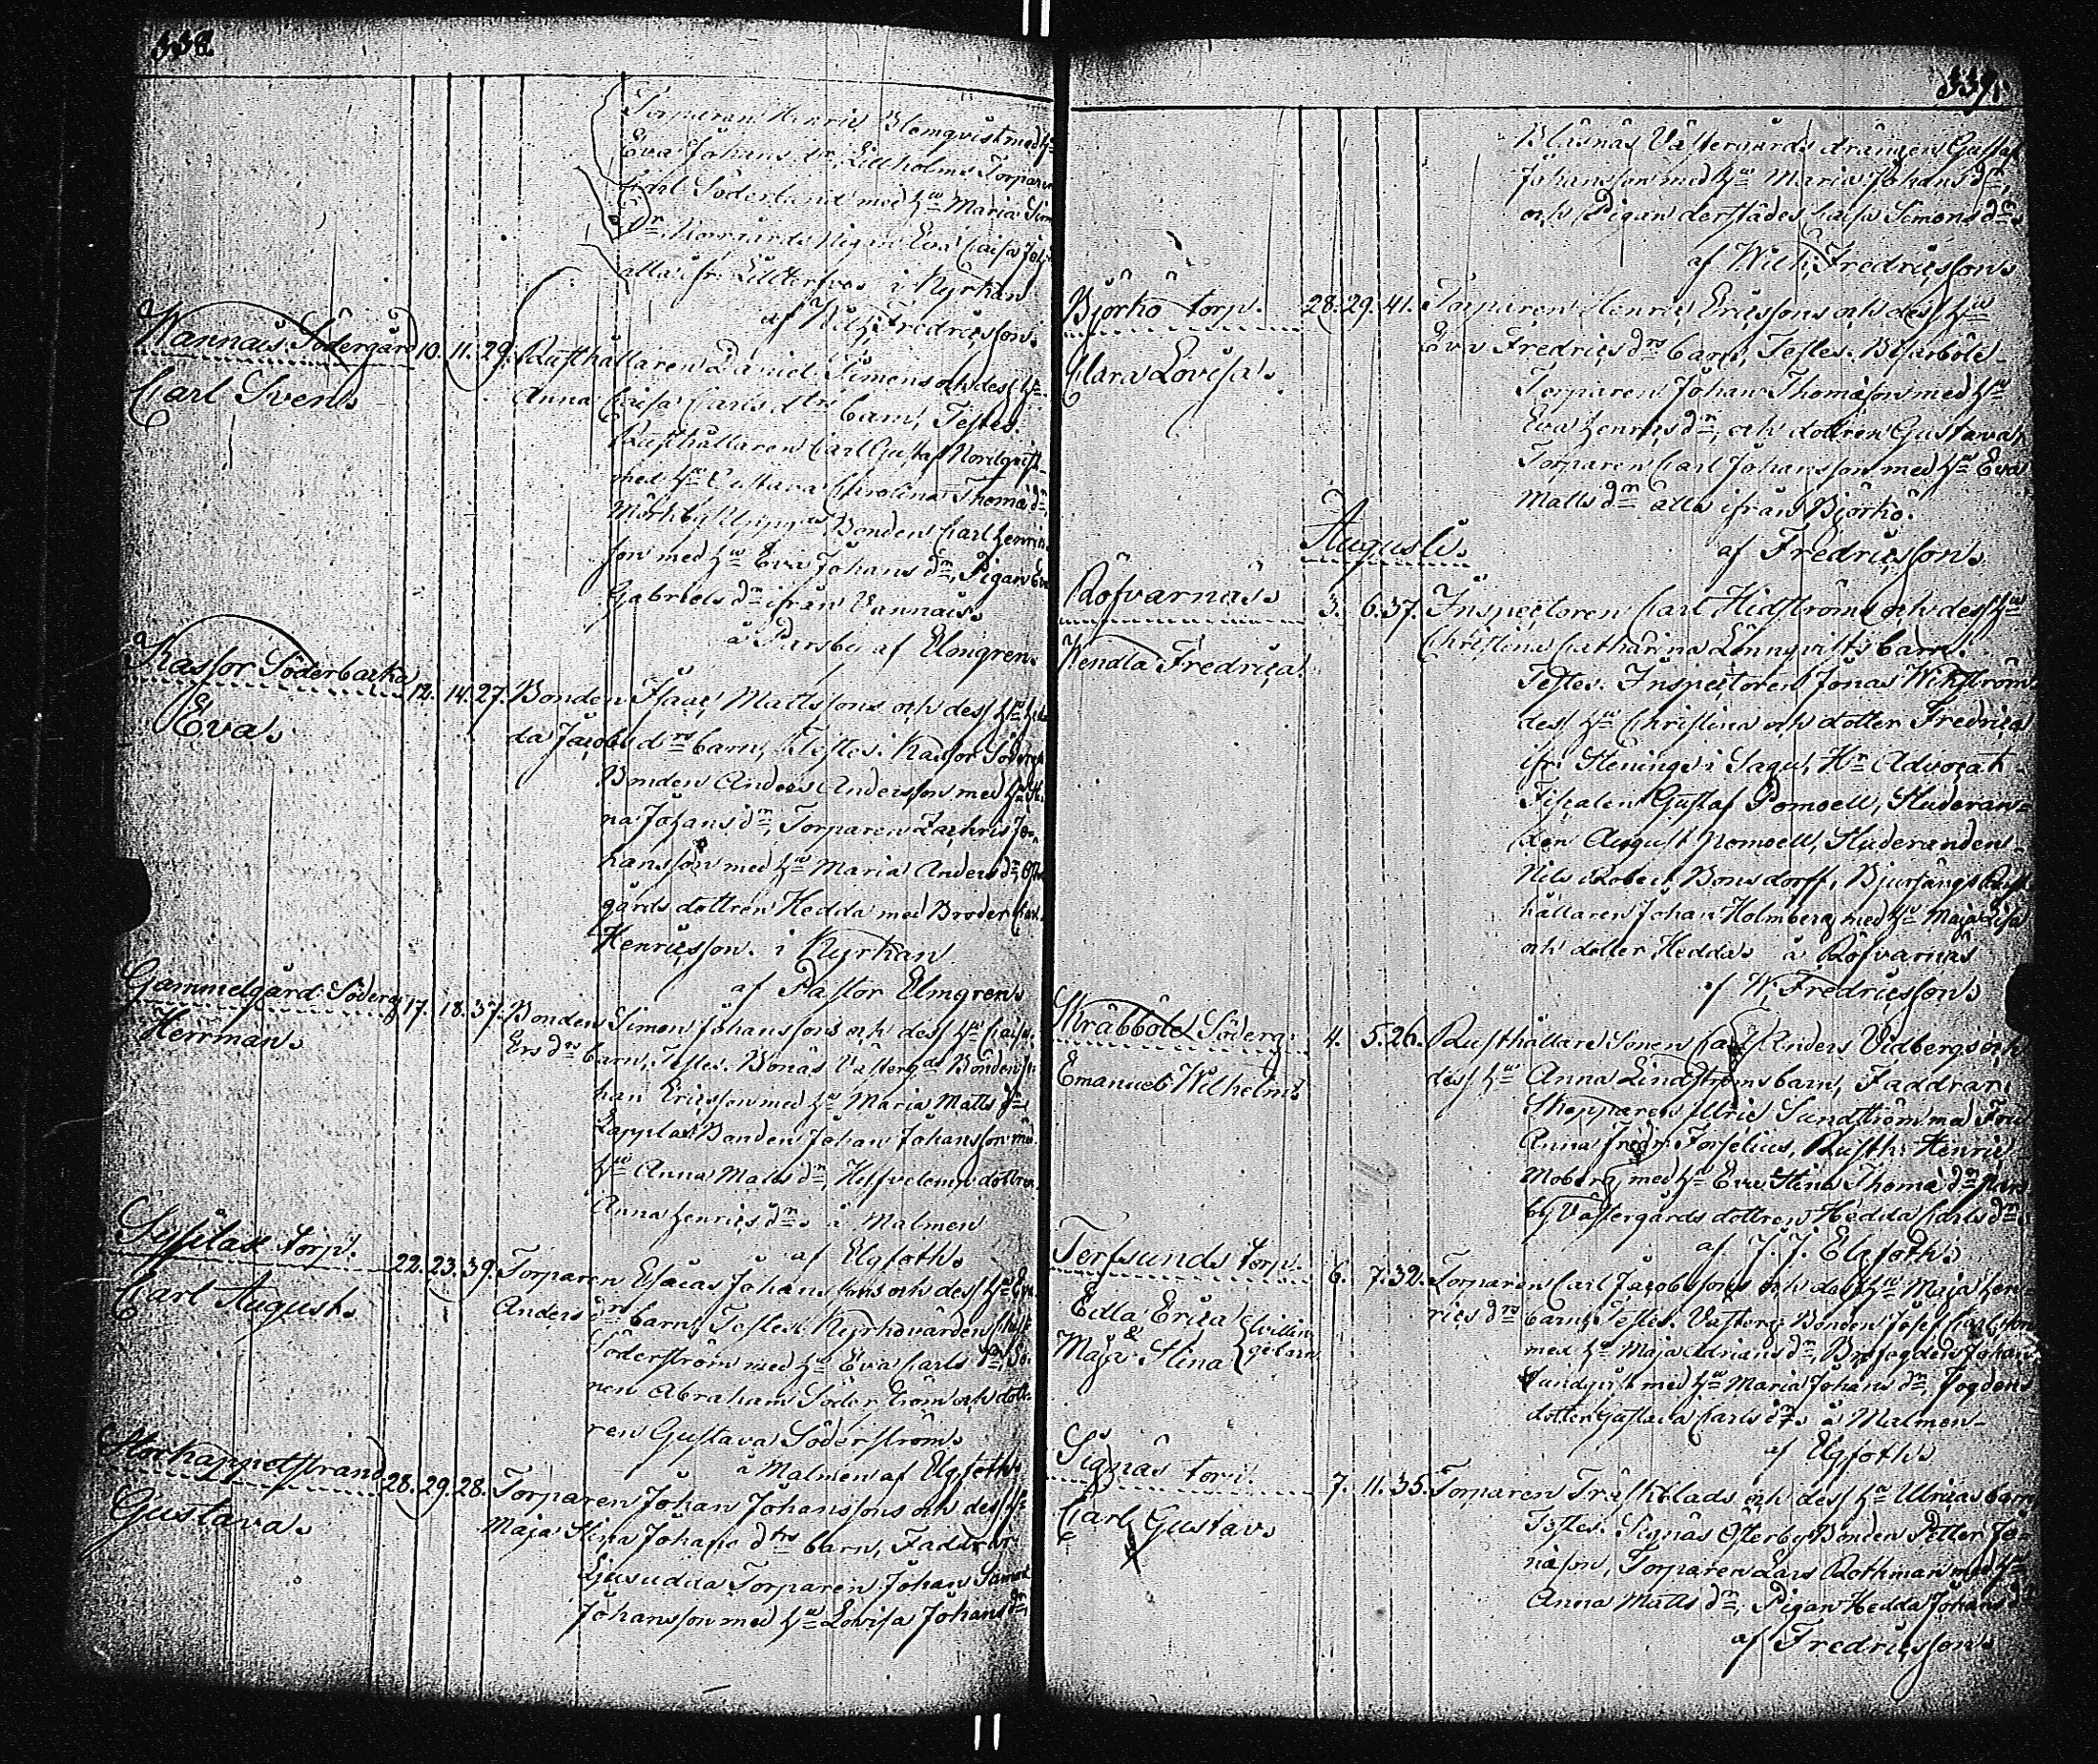 338.
Torparen Henric Blomqvist med Hu
Eva Johans dr, Lillholms Torparen
Carl Söderlund med Hu Maria Sim
dr, Norrgårds Pigan Eva Caisa Joh
alla ifr. Lilltervo i Kyrkan
af Wilh. Fredricsson.
Wannais Södergård 10. 11. 29. Rusthållaren Daniel Simons och dess Hu
Carl Sven. Anna Caisa Carls drs barn, Testes.
Rusthållaren Carl Gustaf Nordqvist
med Hu Gustava Carolina Thomæ dr,
Mörkby Uppgs Bonden Carl Henrics
son med Hu Eva Johans dr, Pigan Eva
Gabriels dr ifrån Vannais.
å Parsby af Elmgren.
Kassor Söderbacka 12. 14. 27. Bonden Isaac Mattssons och dess Hu Hed
Eva. da Jacobs drs barn, Testes. Kassor Söderg
Bonden Anders Andersson med Hu Sti
na Johans dr, Torparen Zachris Jo
hansson med Hu Maria Anders dr, Öster
gårds dottren Hedda med Broder Carl
Henricsson. i Kyrkan
af Pastor Elmgren.
Gammelgård Söderg 17. 18. 37. Bonden Simon Johanssons och dess Hu Caisa
Herrman. Ers drs barn, Testes. Bonäs Västergds Bonden Jo
han Ericsson med Hu Maria Matts dr,
Lapplax Bonden Johan Johansson med
Hu Anna Matts dr, dottren
Anna Henrics dr. å Malmen
af Elgfoth.
Sysilax torp. 22. 23. 39. Torparen Esaias Johanssons och dess Hu Eva
Carl August. Anders drs barn, Testes. Kyrkovärden
Söderström med Hu Eva Carls dr, So
nen Abraham Söderström och dott
ren Gustava Söderström.
å Malmen af Elgfoth.
Storhappelstrand 28. 29. 28. Torparen Johan Johanssons och dess Hu
Gustava. Maja Stina Johans drs barn, Faddrar
Ljusudda Torparen Johan Samuel
Johansson med Hu Lovisa Johans dr,
339.
Bläsnäs Västergårds drängen Gustaf
Johansson med Hu Maria Johans dr,
och Pigan derstädes Caisa Simons dr.
af Wilh. Fredricsson.
Björkö torp. 28. 29. 41. Torparen Henric Ericssons och dess Hu
Clara Lovisa. Eva Fredrics drs barn, Testes. Bisarböle
Torparen Johan Thomasson med Hu
Eva Henrics dr, och dottren Gustava,
Torparen Carl Johansson med Hu Eva
Matts dr alla ifrån Björkö.
af Fredricsson.
Augusti.
Röfvarnäs. 3. 6. 37. Inspectoren Carl Hidströms och dess Hu
Wendla Fredrica. Christina Catharina Lönnqvists barn.
Testes. Inspectoren Jonas Wikström
dess Hu Christina och dotter Fredrica
ifr. Steninge i Sagu, Hr Advocat
Fiscalen Gustaf Pomoell, Studeran=
den August Pomoell, Studeranden
Nils Robert Bonsdorff, Bjursängs Rust
hållaren Johan Holmberg med Hu Maja Lisa
och dotter Hedda. å Röfvarnäs
af W. Fredricsson.
Skräbböle Söderg. 4. 5. 26. Rusthållare Sonen Carl Anders Vidbergs och
Emanuel Wilhelm. dess Hu Anna Lindströms barn, Faddrar:
Skepparen Ulric Sundström med Fru
Anna Fredr. Forselius, Rusth. Henric
Moberg med Hu Eva Stina Thomæ dr, Pars
by Västergårds dottren Hedda Carls dr.
af J. J. Elgfoth.
Terfsunds torp. 6. 7. 32. Torparen Carl Jacobssons och dess Hu Maja Hen=
Edla Erica & Maja Stina tvillingebarn rics drs barn, Testes. Västerg. Bonden Josef Carlsson
med Hu Maja Adrians dr, Brofogden Johan
Lundqvist med Hu Maria Johans dr, Fogdens
dotter Gustava Carls dr. å Malmen
af Elgfoth.
Signäs torp. 7. 11. 35. Torparen Träskblads och dess Hu Ulricas barn
Carl Gustav. Testes. Signäs Österby Bonden Petter Jo=
nasson, Torparen Lars Rothman med Hu
Anna Matts dr, Pigan Hedda Johans dr
af Fredricsson.